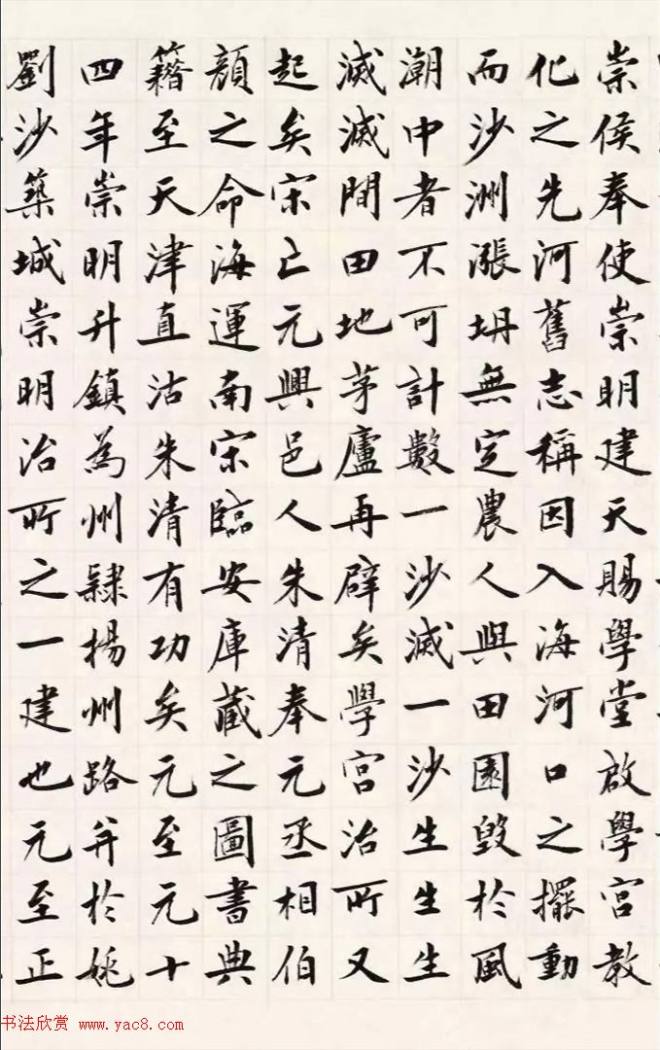 崇侯奉使崇明建天賜學堂啟學宮教
化之先河舊志稱因入海河口之擺動
而沙洲漲坍無定農人與田園毀於風
潮中者不可計數一沙滅一沙生生生
滅滅間田地茅廬再辟矣學宮治所又
起矣宋亡元興邑人朱清奉元丞相伯
顏之命海運南宋臨安庫藏之圖書典
籍至天津直沽朱清有功矣元至元十
四年崇明升鎮為州隸揚州路并於姚
劉沙築城崇明治所之一建也元至正
书法欣赏 www.yac8.com